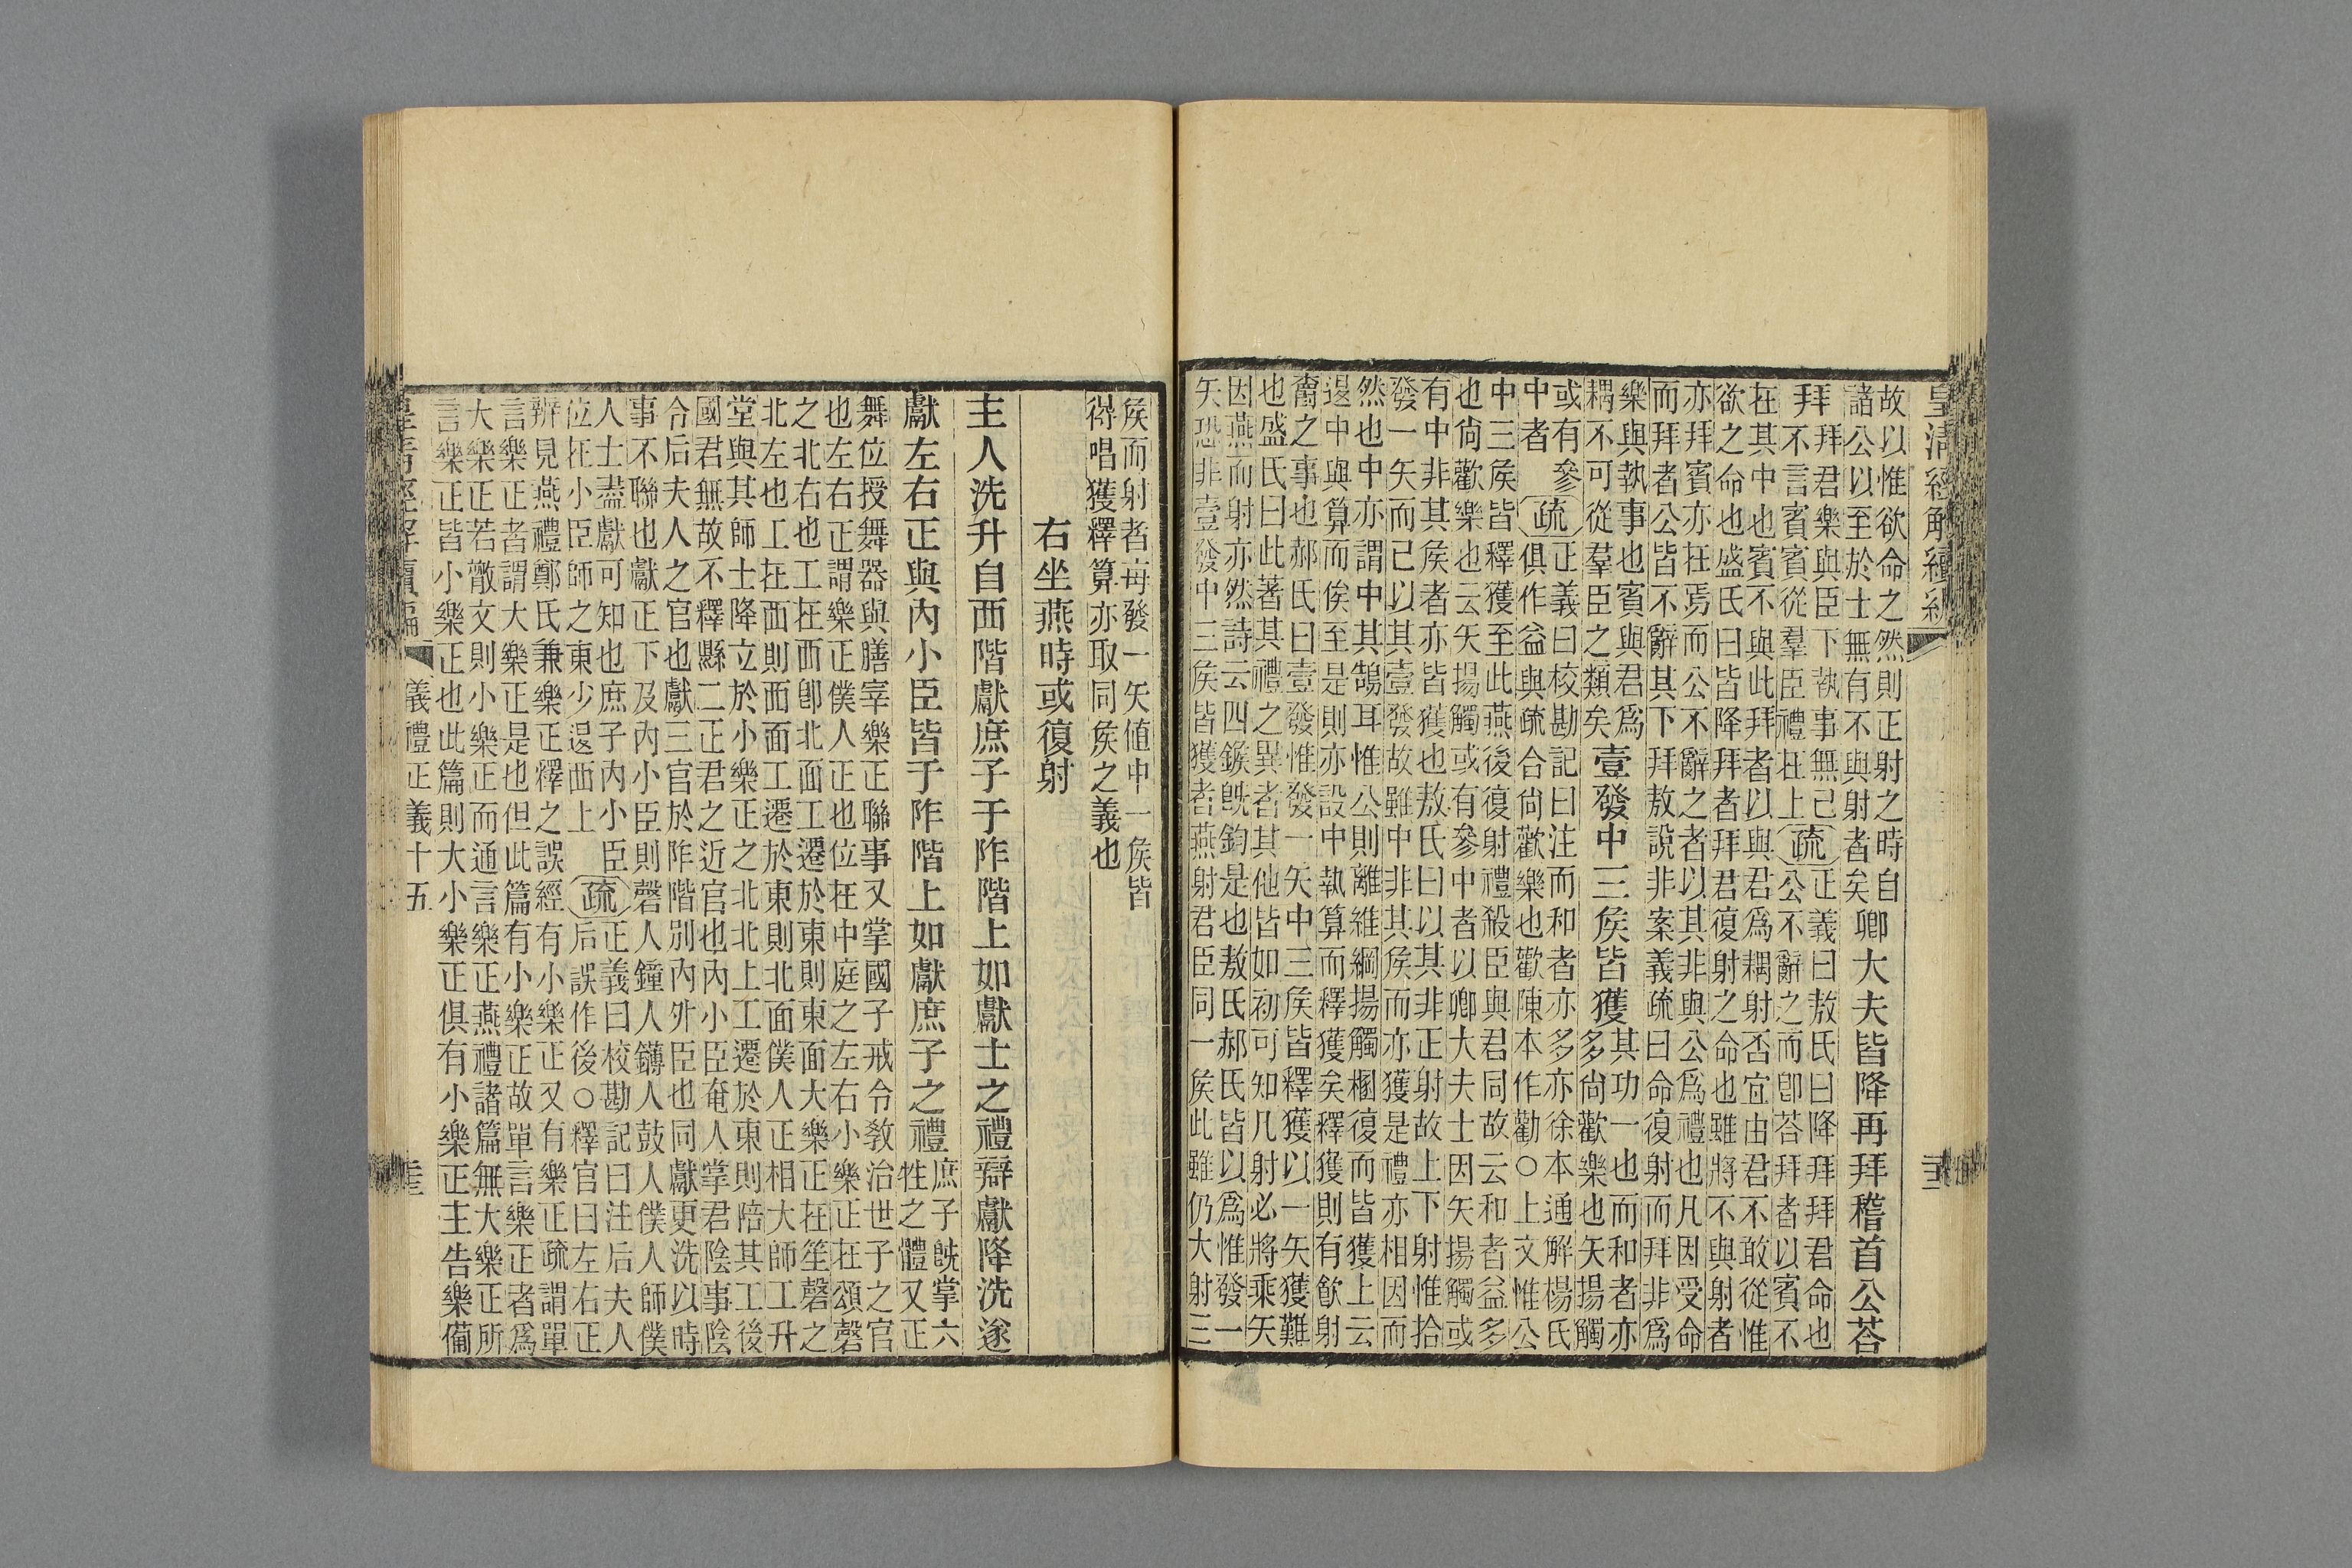 皇清經解續編
故以惟欲命之然則正射之時自
諸公以至於士無有不與射者矣
卿大夫皆降再拜稽首公荅
拜
拜君樂與臣下執事無已
不言賓賓從羣臣禮在上
疏
正義曰敖氏曰降拜拜君命也
公不辭之而卽荅拜者以賓不
在其中也賓不與此拜者以與君爲耦射否宜由君不敢從惟
欲之命也盛氏曰皆降拜者拜君復射之命也雖將不與射者
亦拜賓亦在焉而公不辭之者以其非與公爲禮也凡因受命
而拜者公皆不辭其下拜敖說非案義疏曰命復射而拜非爲
樂與執事也賓與君爲
耦不可從羣臣之類矣
壹發中三侯皆獲
其功一也而和者亦
多尙歡樂也矢揚觸
或有參
中者
疏
正義曰校勘記曰注而和者亦多亦徐本通解楊氏
俱作益與疏合尙歡樂也歡陳本作勸○上文惟公
中三侯皆釋獲至此燕後復射禮殺臣與君同故云和者益多
也尙歡樂也云矢揚觸或有參中者以卿大夫士因矢揚觸或
有中非其侯者亦皆獲也敖氏曰以其非正射故上下射惟拾
發一矢而已以其壹發故雖中非其侯而亦獲是禮亦相因而
然也中亦謂中其鵠耳惟公則離維綱揚觸梱復而皆獲上云
退中與算而俟至是則亦設中執算而釋獲矣釋獲則有飮射
爵之事也郝氏曰壹發惟發一矢中三侯皆釋獲以一矢獲難
也盛氏曰此著其禮之異者其他皆如初可知凡射必將乘矢
因燕而射亦然詩云四鍭旣鈞是也敖氏郝氏皆以爲惟發一
矢恐非壹發中三侯皆獲者燕射君臣同一侯此雖仍大射三
侯而射者每發一矢値中一侯皆
得唱獲釋算亦取同侯之義也
右坐燕時或復射
主人洗升自西階獻庶子于阼階上如獻士之禮辯獻降洗遂
獻左右正與內小臣皆于阼階上如獻庶子之禮
庶子旣掌六
牲之體又正
舞位授舞器與膳宰樂正聯事又掌國子戒令敎治世子之官
也左右正謂樂正僕人正也位在中庭之左右小樂正在頌磬
之北右也工在西卽北面工遷於東則東面大樂正在笙磬之
北左也工在西則西面工遷於東則北面僕人正相大師工升
堂與其師士降立於小樂正之北北上工遷於東則陪其工後
國君無故不釋縣二正君之近官也內小臣奄人掌君陰事陰
令后夫人之官也獻三官於阼階別內外臣也同獻更洗以時
事不聯也獻正下及內小臣則磬人鐘人鎛人鼓人僕人師僕
人士盡獻可知也庶子內小臣
位在小臣師之東少退西上
疏
正義曰校勘記曰注后夫人
后誤作後○釋官曰左右正
辨見燕禮鄭氏兼樂正釋之誤經有小樂正又有樂正疏謂單
言樂正者謂大樂正是也但此篇有小樂正故單言樂正者爲
大樂正若散文則小樂正而通言樂正燕禮諸篇無大樂正所
言樂正皆小樂正也此篇則大小樂正俱有小樂正主告樂備
儀禮正義十五